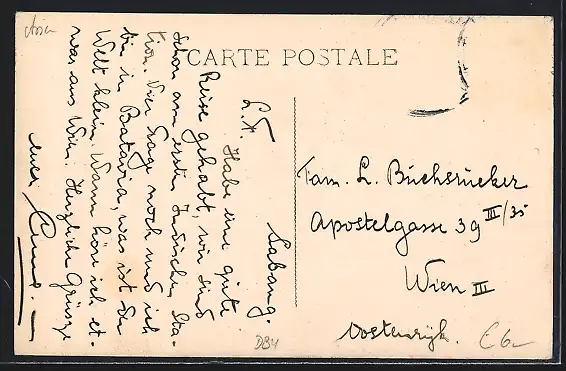 Asien
CARTE POSTALE
Sabang.
L. F.
Habe eine gute
Reise gehabt, wir sind
schon am ersten Indischen Sta-
tion. Vier Tage noch und ich
bin in Batavia, was ist die
Welt klein. Wann höre ich et-
was aus Wien. Herzliche Grüsse
euer
Fam. L. Buchsrücker
Apostelgasse 39 III/35
Wien III
Oostenryk.
DB4
€6,-